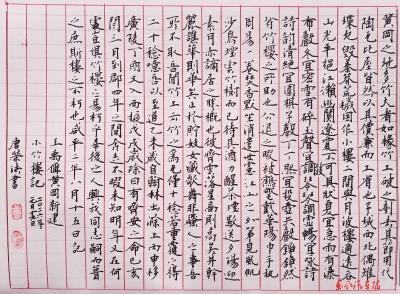 黄岡之地多竹大者如椽竹工破之刳去其節用代
陶瓦比屋皆然以其價廉而工省也子城西北隅雉
堞圮毀蓁莽荒穢因作小樓二間與月波樓通遠吞
山光平挹江瀨幽闃遼敻不可具狀夏宜急雨有瀑
布聲冬宜密雪有碎玉聲宜鼓琴琴調虛暢宜詠
詩詩韵清絕宜圍棋子聲丁丁然宜投壺矢聲錚錚然
皆竹樓之所助也公退之暇被鶴氅戴華陽巾手執
周易一卷焚香默坐消遣世慮江山之外第見風帆
沙鳥煙雲竹樹而已待其酒力醒茶煙歇送夕陽迎
素月亦謫居之勝概也彼齊雲落星高則高矣井幹
麗譙華則華矣止於貯妓女藏歌舞非騷人之事吾
所不取吾聞竹工云竹之為瓦僅十稔若重覆之得
二十稔噫吾以至道乙未歲自翰林出滁上丙申移
廣陵丁酉又入西掖戊戌歲除日有齊安之命己亥
閏三月到郡四年之間奔走不暇未知明年又在何
處豈懼竹樓之易朽乎幸後之人與我同志嗣而葺
之庶斯樓之不朽也咸平二年八月十五日記
王禹偁黄岡新建
小竹樓記